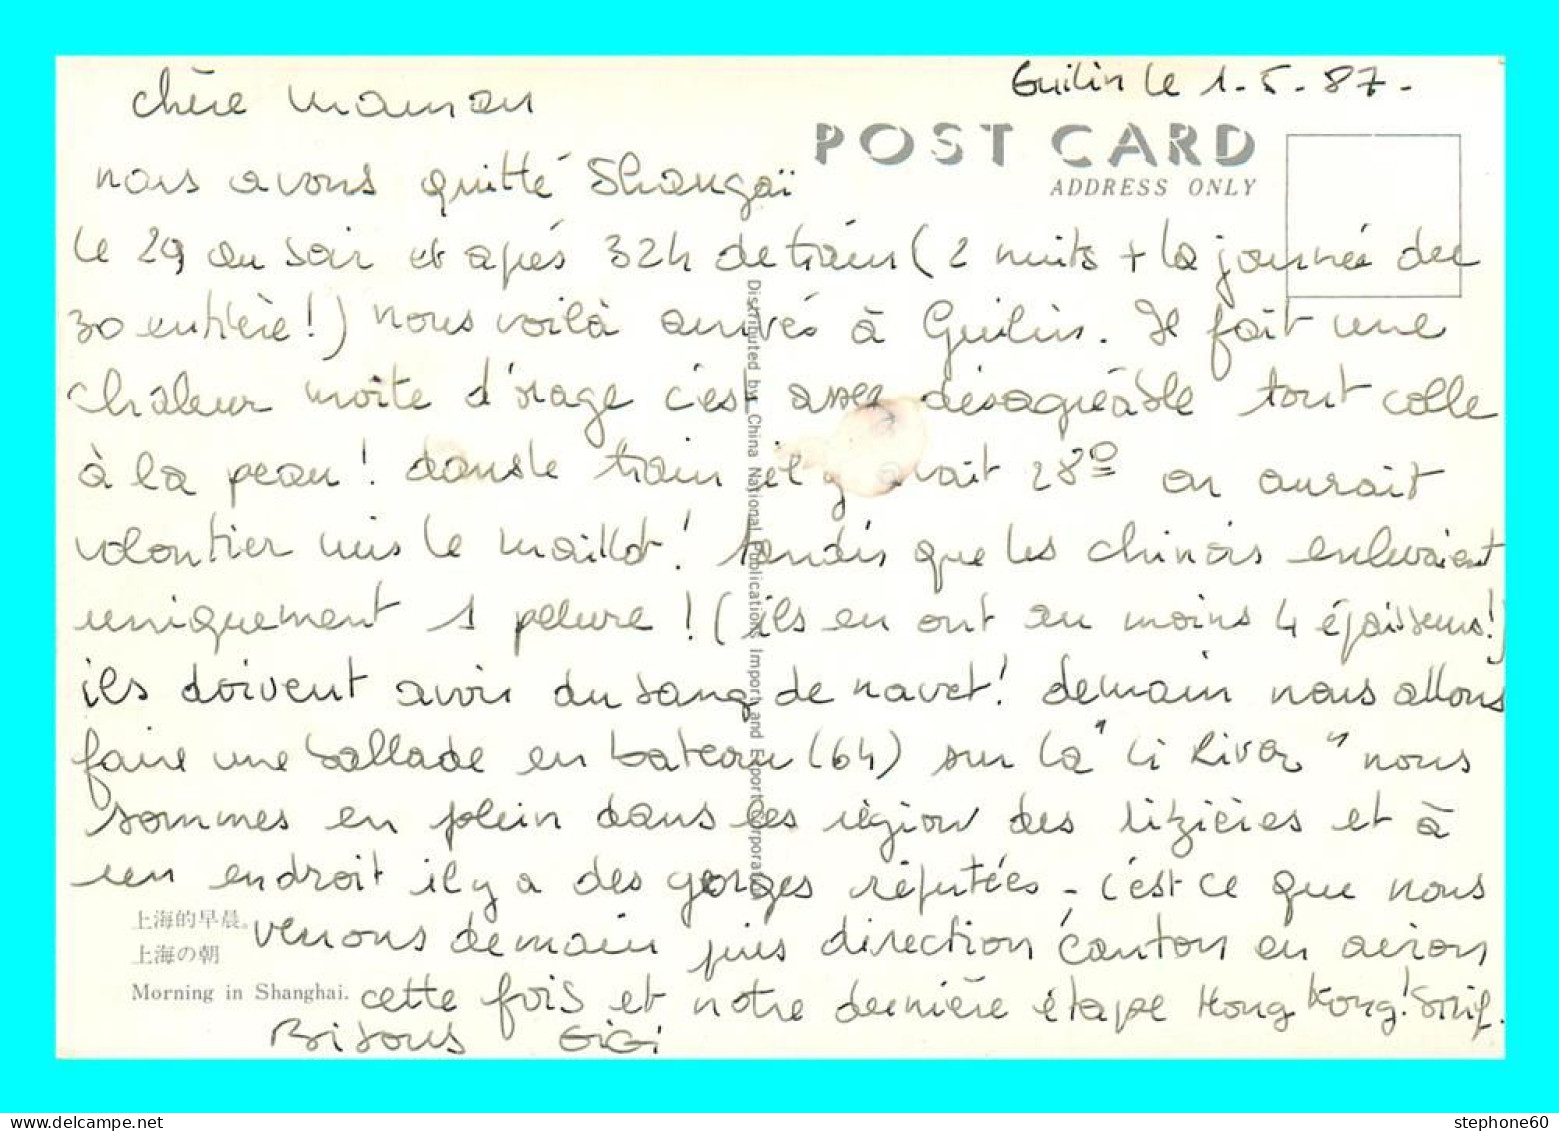 Guilin le 1-5-87-
chère maman
POST CARD
ADDRESS ONLY
nous avons quitté Shangaï
le 29 au soir et après 32h de train (2 nuits + la journée du
30 entière!) nous voilà arrivés à Guilin. Il fait une
chaleur moite d'orage c'est assez désagréable tout colle
à la peau! dans le train il y avait 28° on aurait
volontier mis le maillot! tandis que les chinois enlevaient
uniquement 1 pelure! (ils en ont au moins 4 épaisseurs!)
ils doivent avoir du sang de navet! demain nous allons
faire une ballade en bateau (6h) sur la "Li River" nous
sommes en plein dans les région des rizières et à
un endroit il y a des gorges réputées - c'est ce que nous
verrons demain puis direction Canton en avion
cette fois et notre dernière étape Hong Kong! Snif.
Bisous GiGi
Distributed by China National Publications Import and Export Corporation
上海的早晨。
上海の朝
Morning in Shanghai.
stephone60